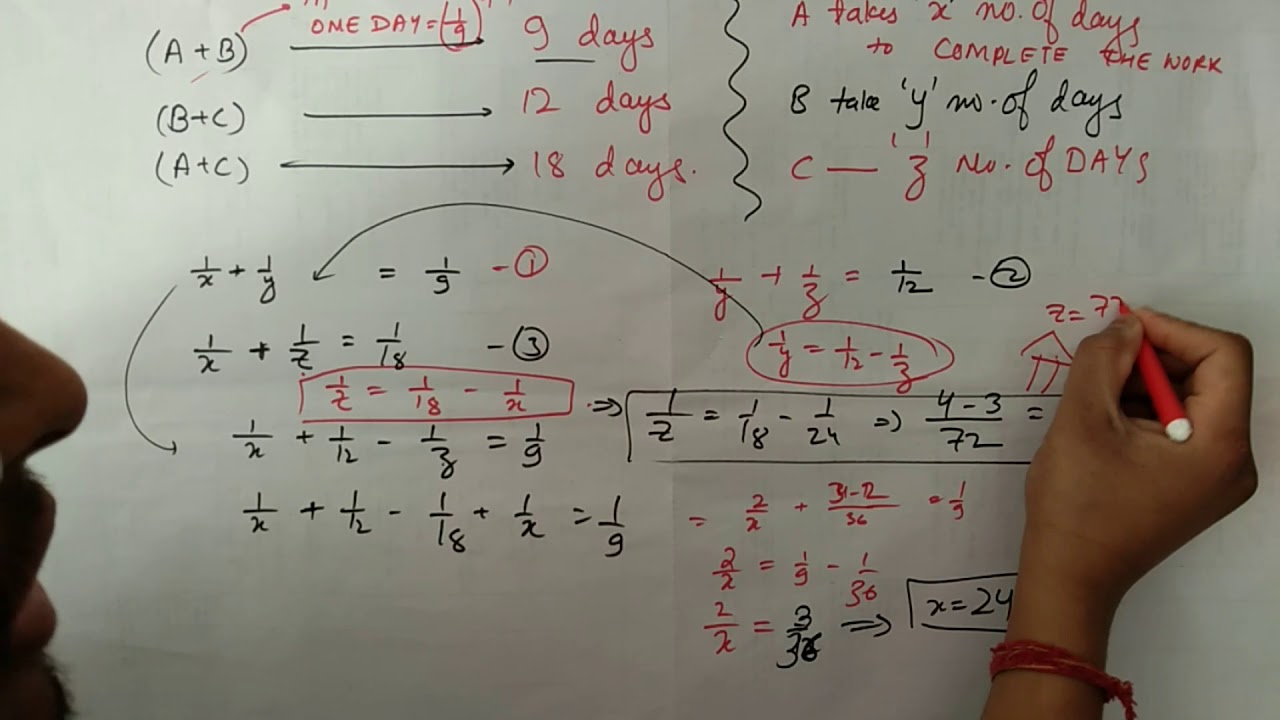 ONE DAY = (1/9)
(A + B) → 9 days
(B+C) → 12 days
(A+C) → 18 days.
A takes 'x' no. of days
to COMPLETE THE WORK
B take 'y' no. of days
C — 'z' No. of DAYS
1/x + 1/y = 1/9 - ①
1/y + 1/z = 1/12 - ②
1/x + 1/z = 1/18 - ③
1/y = 1/12 - 1/z
z = 72
1/z = 1/18 - 1/x
⇒ 1/z = 1/18 - 1/24 ⇒ 4-3/72 =
1/x + 1/12 - 1/z = 1/9
1/x + 1/12 - 1/18 + 1/x = 1/9
= 2/x + 3-2/36 = 1/9
2/x = 1/9 - 1/36
2/x = 3/36 ⇒ x = 24